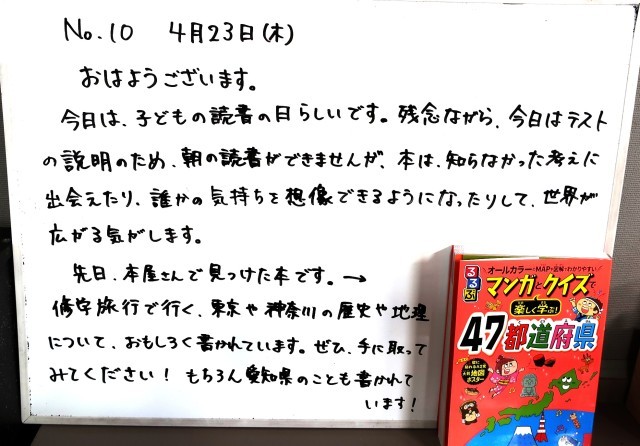 No.10 4月23日(木)
おはようございます。
今日は、子どもの読書の日らしいです。残念ながら、今日はテスト
の説明のため、朝の読書ができませんが、本は、知らなかった考えに
出会えたり、誰かの気持ちを想像できるようになったりして、世界が
広がる気がします。
先日、本屋さんで見つけた本です。→
修学旅行で行く、東京や神奈川の歴史や地理
について、おもしろく書かれています。ぜひ、手に取って
みてください! もちろん愛知県のことも書かれて
います!
るるぶ
オールカラー MAP
マンガとクイズで
楽しく学ぶ!
47都道府県
地図
ポスター